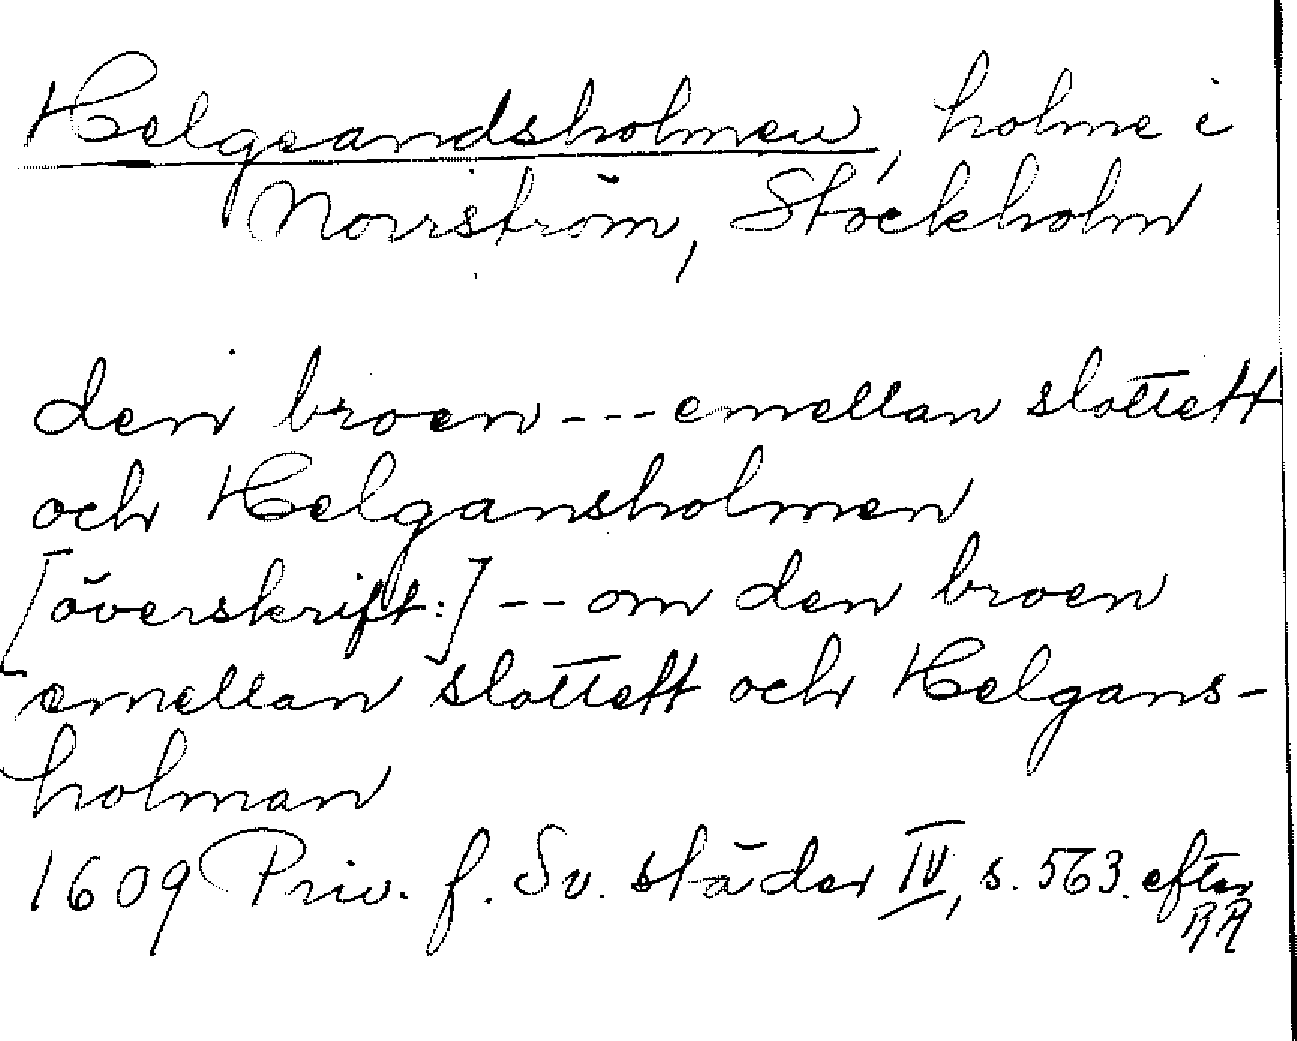 Helgeandsholmen, holme i
Norrström, Stockholm
den broen --- emellan slottett
och Helgansholmen
[överskrift:] -- om den broen
emellan slottett och Helgans-
holman
1609 Priv. f. Sv. städer IV, s. 563. efter
RR